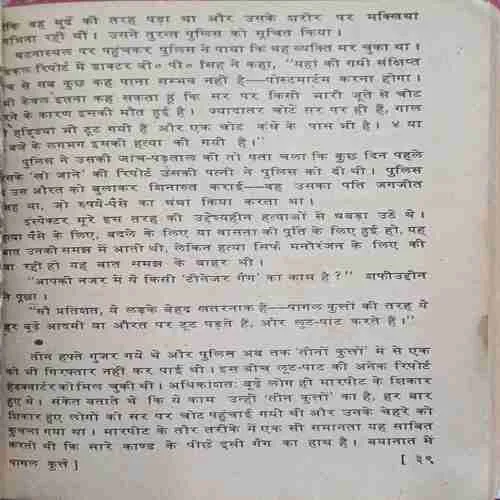 कि वह मुर्दे की तरह पड़ा था और उसके शरीर पर मक्खियां
भिनभिना रही थीं। उसने तुरन्त पुलिस को सूचित किया।
घटनास्थल पर पहुंचकर पुलिस ने पाया कि वह व्यक्ति मर चुका था।
डिकल रिपोर्ट में डाक्टर वी० पी० सिंह ने कहा, "यहां की गयी संक्षिप्त
च से सब कुछ कह पाना सम्भव नहीं है—पोस्टमार्टम करना होगा।
भी केवल इतना कह सकता हूं कि सर पर किसी भारी जूते से चोट
रने के कारण इसकी मौत हुई है। ज्यादातर चोटें सर पर ही हैं, गाल
हड्डियां भी टूट गयी हैं और एक चोट कंधे के पास भी है। ४ या
बजे के लगभग इसकी हत्या की गयी है।"
पुलिस ने उसकी जांच-पड़ताल की तो पता चला कि कुछ दिन पहले
सके 'खो जाने' की रिपोर्ट उसकी पत्नी ने पुलिस को दी थी। पुलिस
उस औरत को बुलाकर शिनाख्त कराई—वह उसका पति जगजीत
ह था, जो रुपये-पैसे का धंधा किया करता था।
इंस्पेक्टर मूरे इस तरह की उद्देश्यहीन हत्याओं से घबड़ा उठे थे।
हत्या पैसे के लिए, बदले के लिए या वासना की पूर्ति के लिए हुई हो, यह
बात उनकी समझ में आती थी, लेकिन हत्या सिर्फ मनोरंजन के लिए की
जा रही हो यह बात समझ के बाहर थी।
"आपकी नजर में ये किसी 'टीनेजर गैंग' का काम है?" शफीउद्दीन
ने पूछा।
"सौ प्रतिशत, ये लड़के बेहद खतरनाक हैं—पागल कुत्तों की तरह ये
हर बूढ़े आदमी या औरत पर टूट पड़ते हैं, और लूट-पाट करते हैं।"
●
तीन हफ्ते गुजर गये थे और पुलिस अब तक 'तीनों कुत्तों' में से एक
को भी गिरफ्तार नहीं कर पाई थी। इस बीच लूट-पाट की अनेक रिपोर्ट
हेडक्वार्टर को मिल चुकी थीं। अधिकांशतः बूढ़े लोग ही मारपीट के शिकार
हुए थे। संकेत बताते थे कि ये काम उन्हीं 'तीन कुत्तों' का है, हर बार
शिकार हुए लोगों को सर पर चोट पहुंचाई गयी थी और उनके चेहरे को
कुचला गया था। मारपीट के तौर तरीके में एक सी समानता यह साबित
करती थी कि सारे काण्ड के पीछे इसी गैंग का हाथ है। बयानात में
पागल कुत्ते] [३९